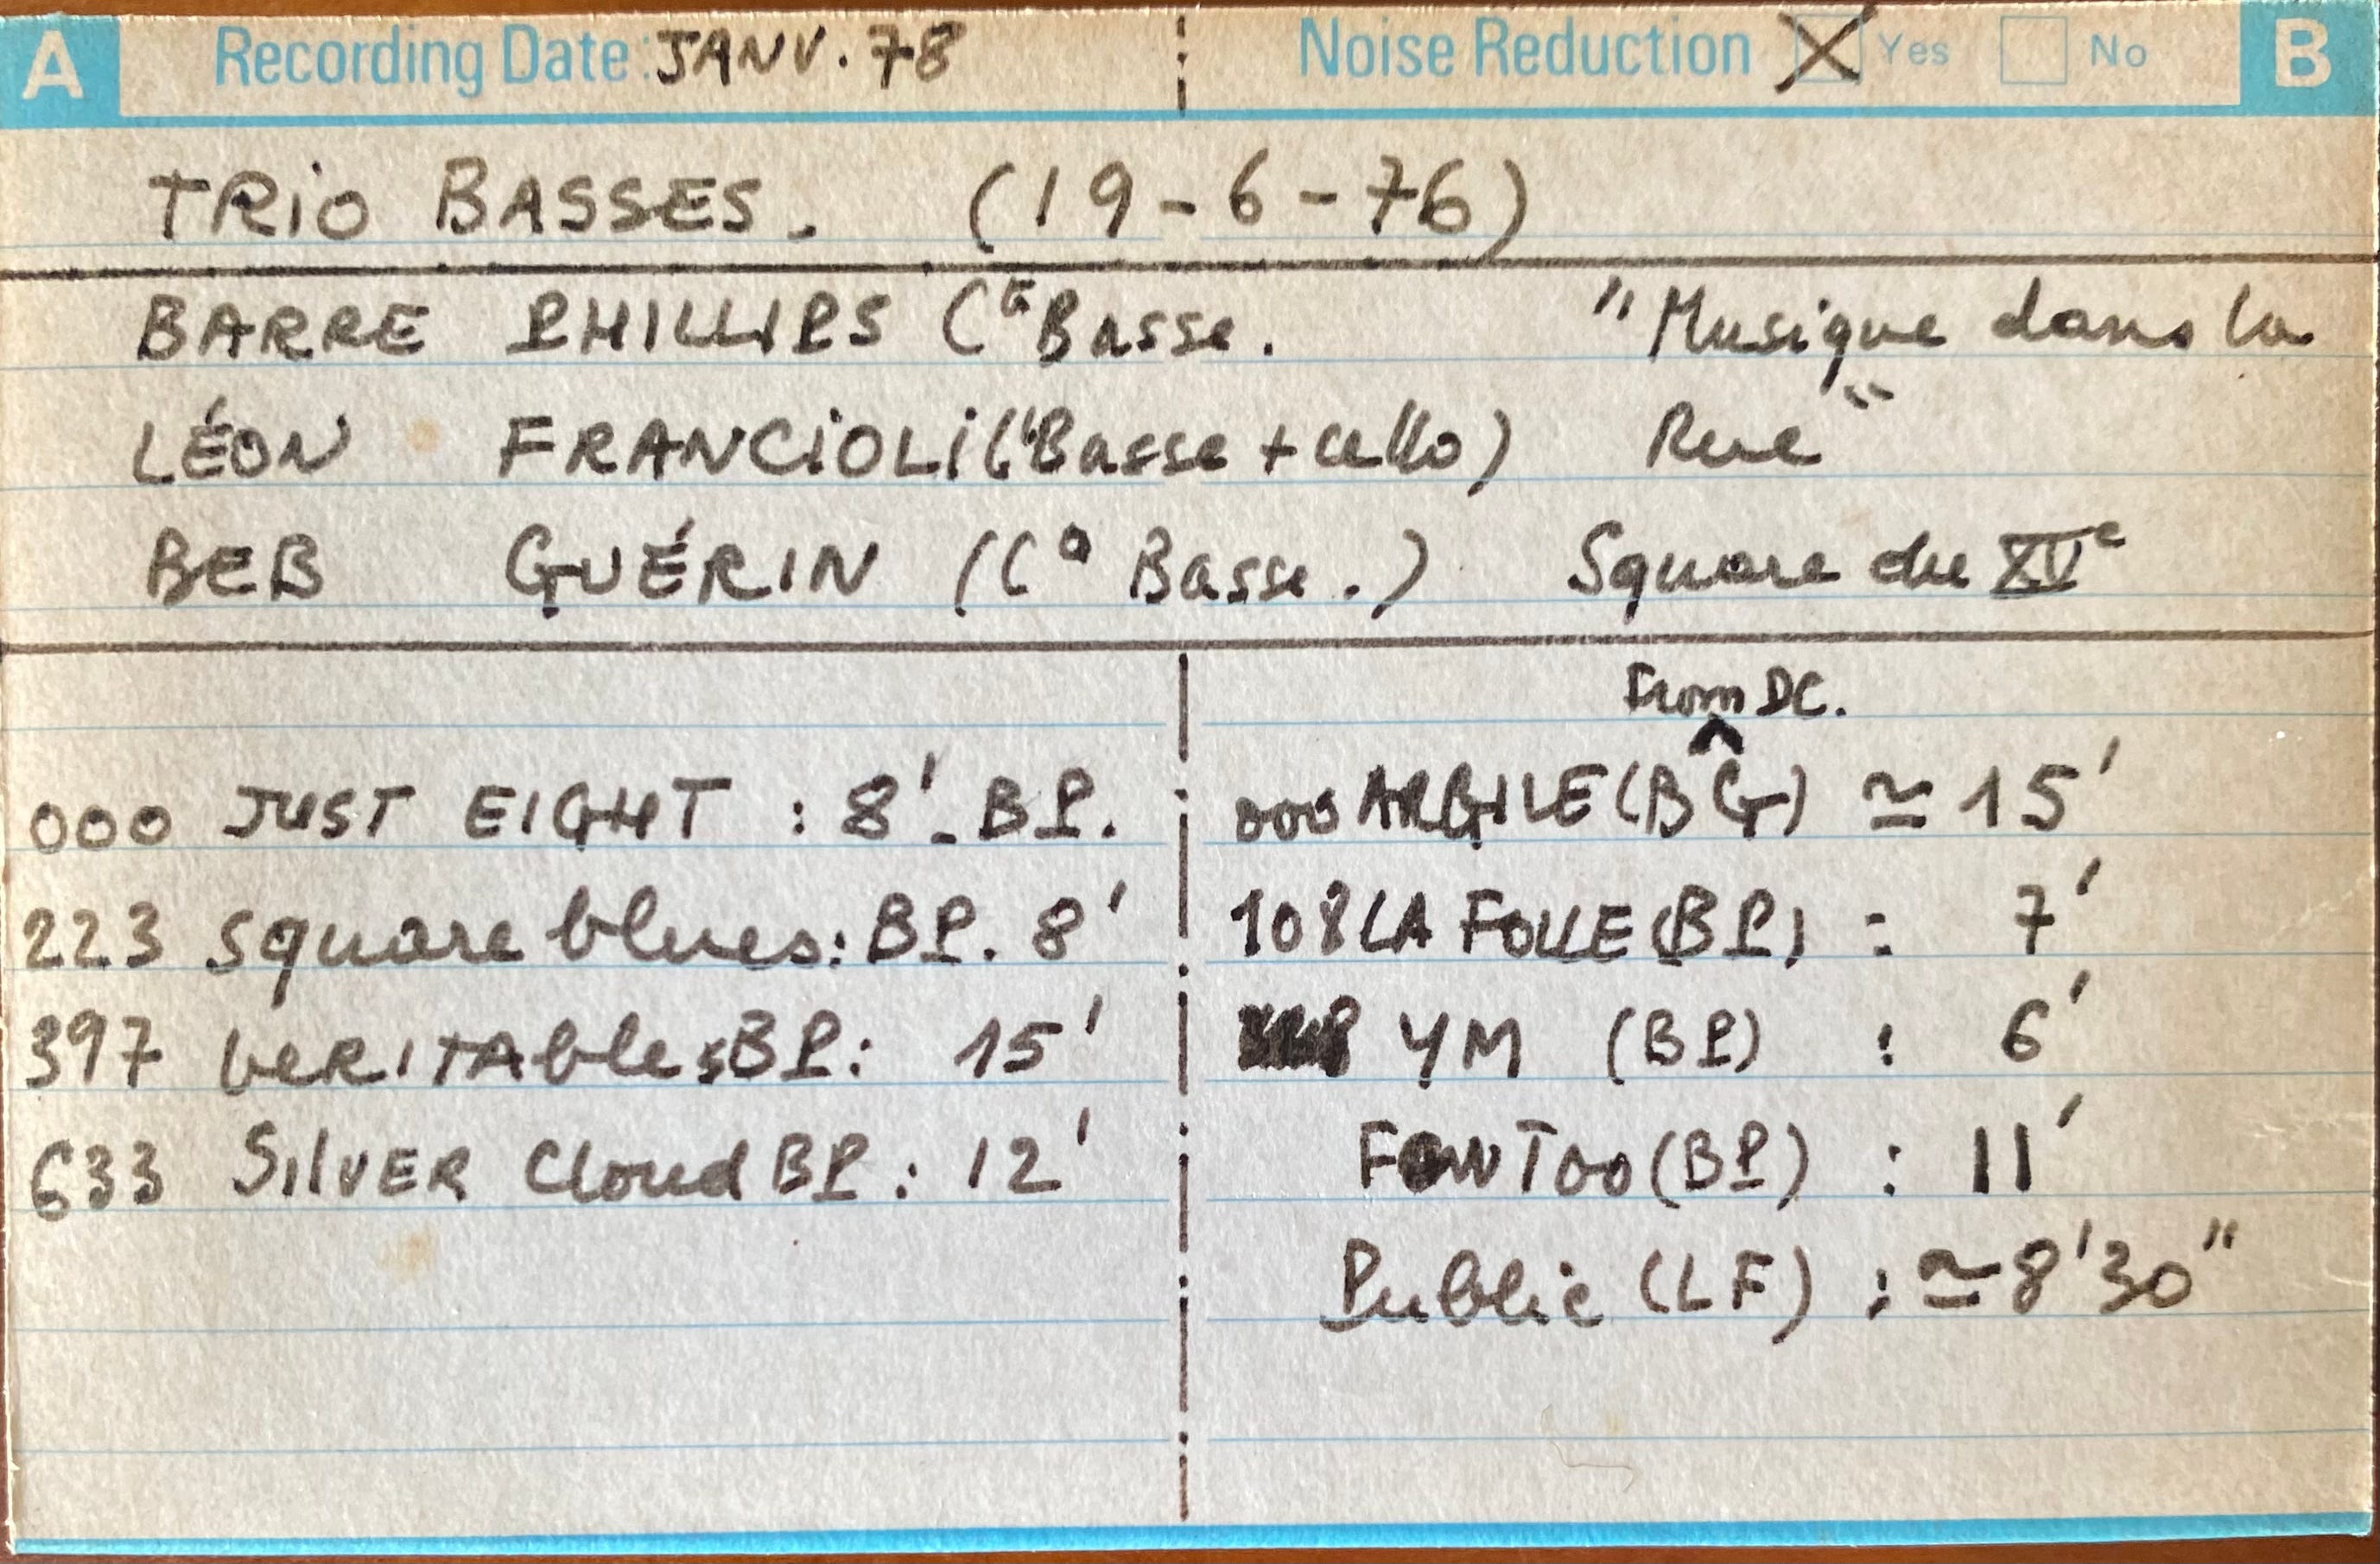 A Recording Date: JANV. 78 Noise Reduction Yes No B
TRiO BASSES. (19-6-76)
BARRE PHILLIPS CE Basse. "Musique dans la
LÉON FRANCiOLi (Basse + cello) Rue"
BEB GUÉRIN (C° Basse.) Square du XVe
From DC.
000 JUST EIGHT : 8' - BP.
223 square blues: BP. 8'
397 VERITAbles BP: 15'
633 SIlVER Cloud BP: 12'
000 ARGILE (BG) ≃ 15'
108 LA FOLLE (BP) : 7'
YM (BP) : 6'
Too (BP) : 11'
Public (LF) : ≃ 8'30"